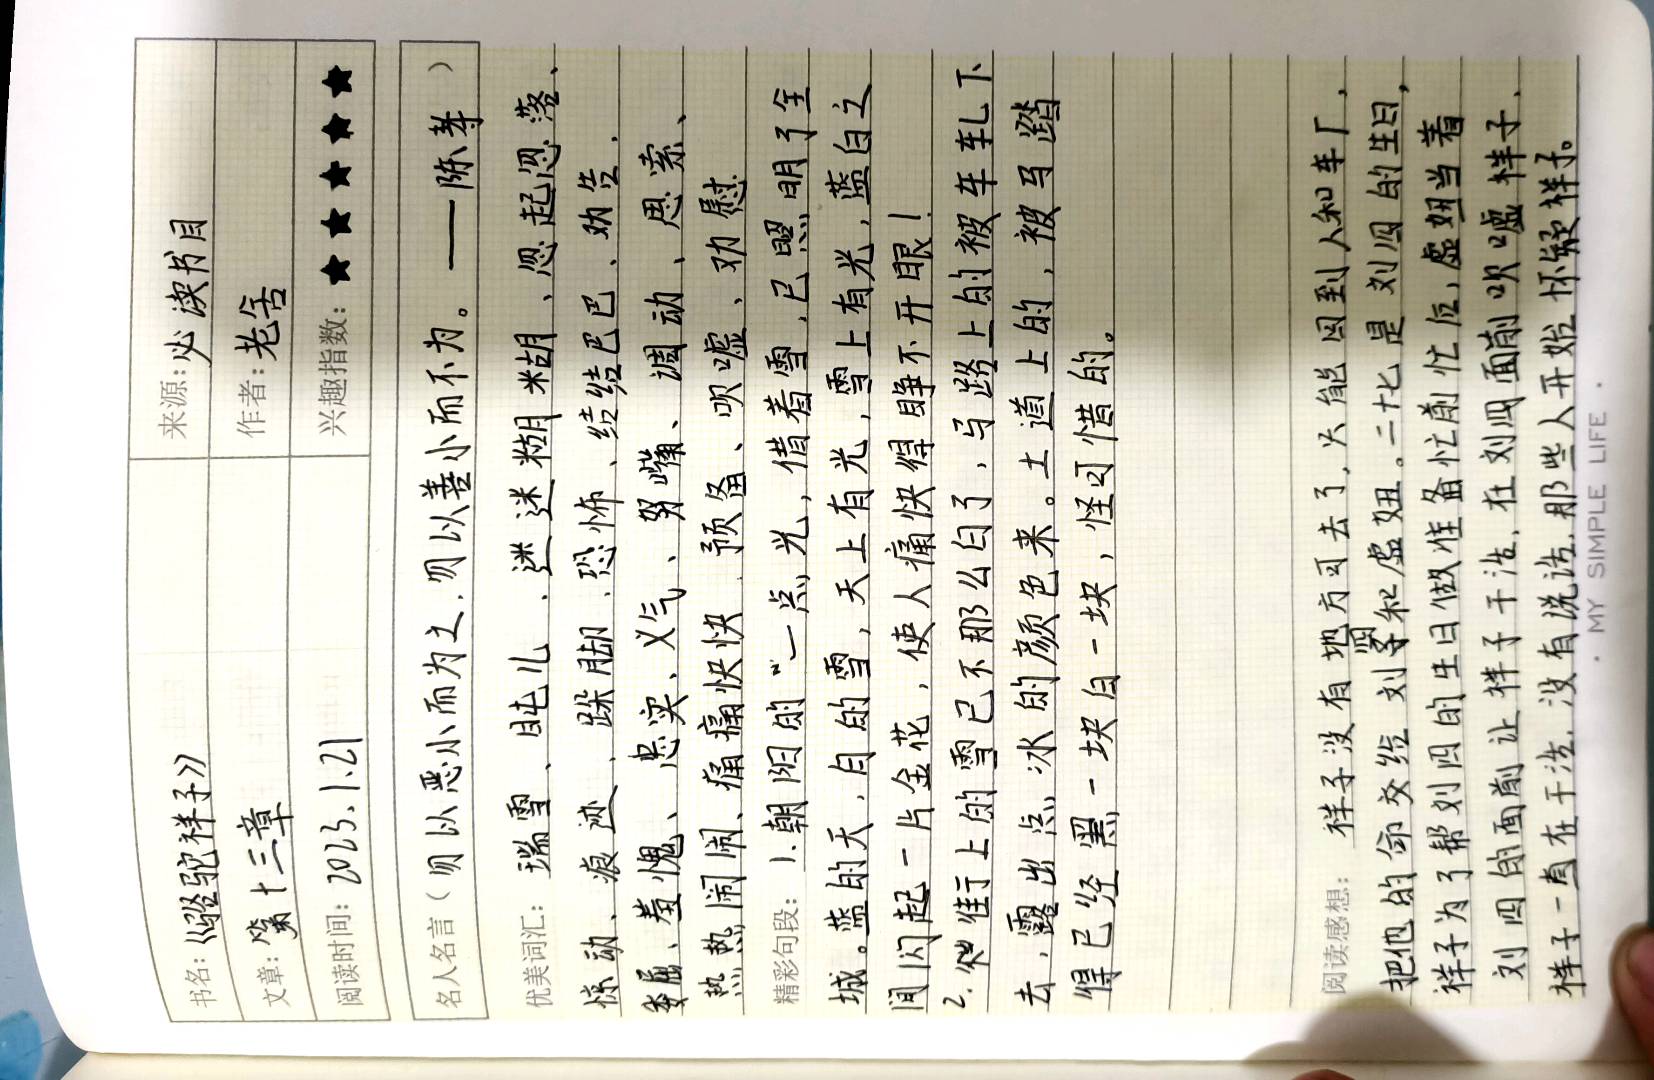 书名：《骆驼祥子》 来源：必读书目
文章：第十三章 作者：老舍
阅读时间：2025.1.21 兴趣指数：★★★★★
名人名言（勿以恶小而为之，勿以善小而不为。——陈寿）
优美词汇： 瑞雪、盹儿、迷迷糊糊、忽起忽落、
惊动、痕迹、跺脚、恐怖、结结巴巴、劝告、
委屈、羞愧、忠实、义气、努嘴、调动、思索、
热热闹闹、痛痛快快、预备、吹嘘、劝慰
精彩句段： 1.朝阳的“一点光，借着雪，已照明了全
城。蓝的天，白的雪，天上有光，雪上有光，蓝白之
间闪起一片金花，使人痛快得睁不开眼！
2.街上的雪已不那么白了，马路上的被车轧下
去，露出点冰的颜色来。土道上的，被马踏
得已经黑一块白一块，怪可惜的。
阅读感想： 祥子没有地方可去了，只能回到人和车厂，
把他的命交给刘四和虚妞。二十七是刘四的生日，
祥子为了帮刘四的生日做准备忙前忙后，虚妞当着
刘四的面前让祥子干活，在刘四面前吹嘘祥子，
祥子一直在干活，没有说话，那些人开始怀疑祥子。
· MY SIMPLE LIFE ·